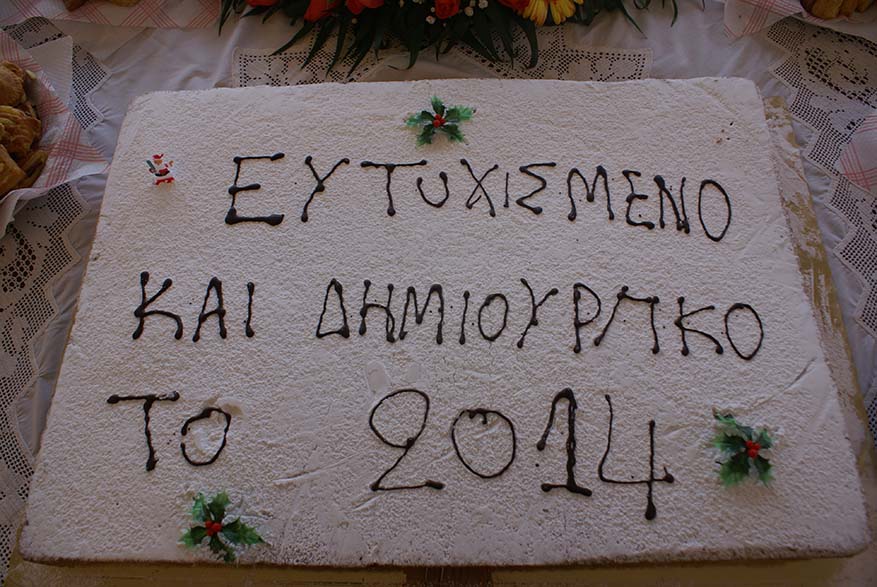 ΕΥΤΥΧΙΣΜΕΝΟ
ΚΑΙ ΔΗΜΙΟΥΡΓΙΚΟ
ΤΟ 2014